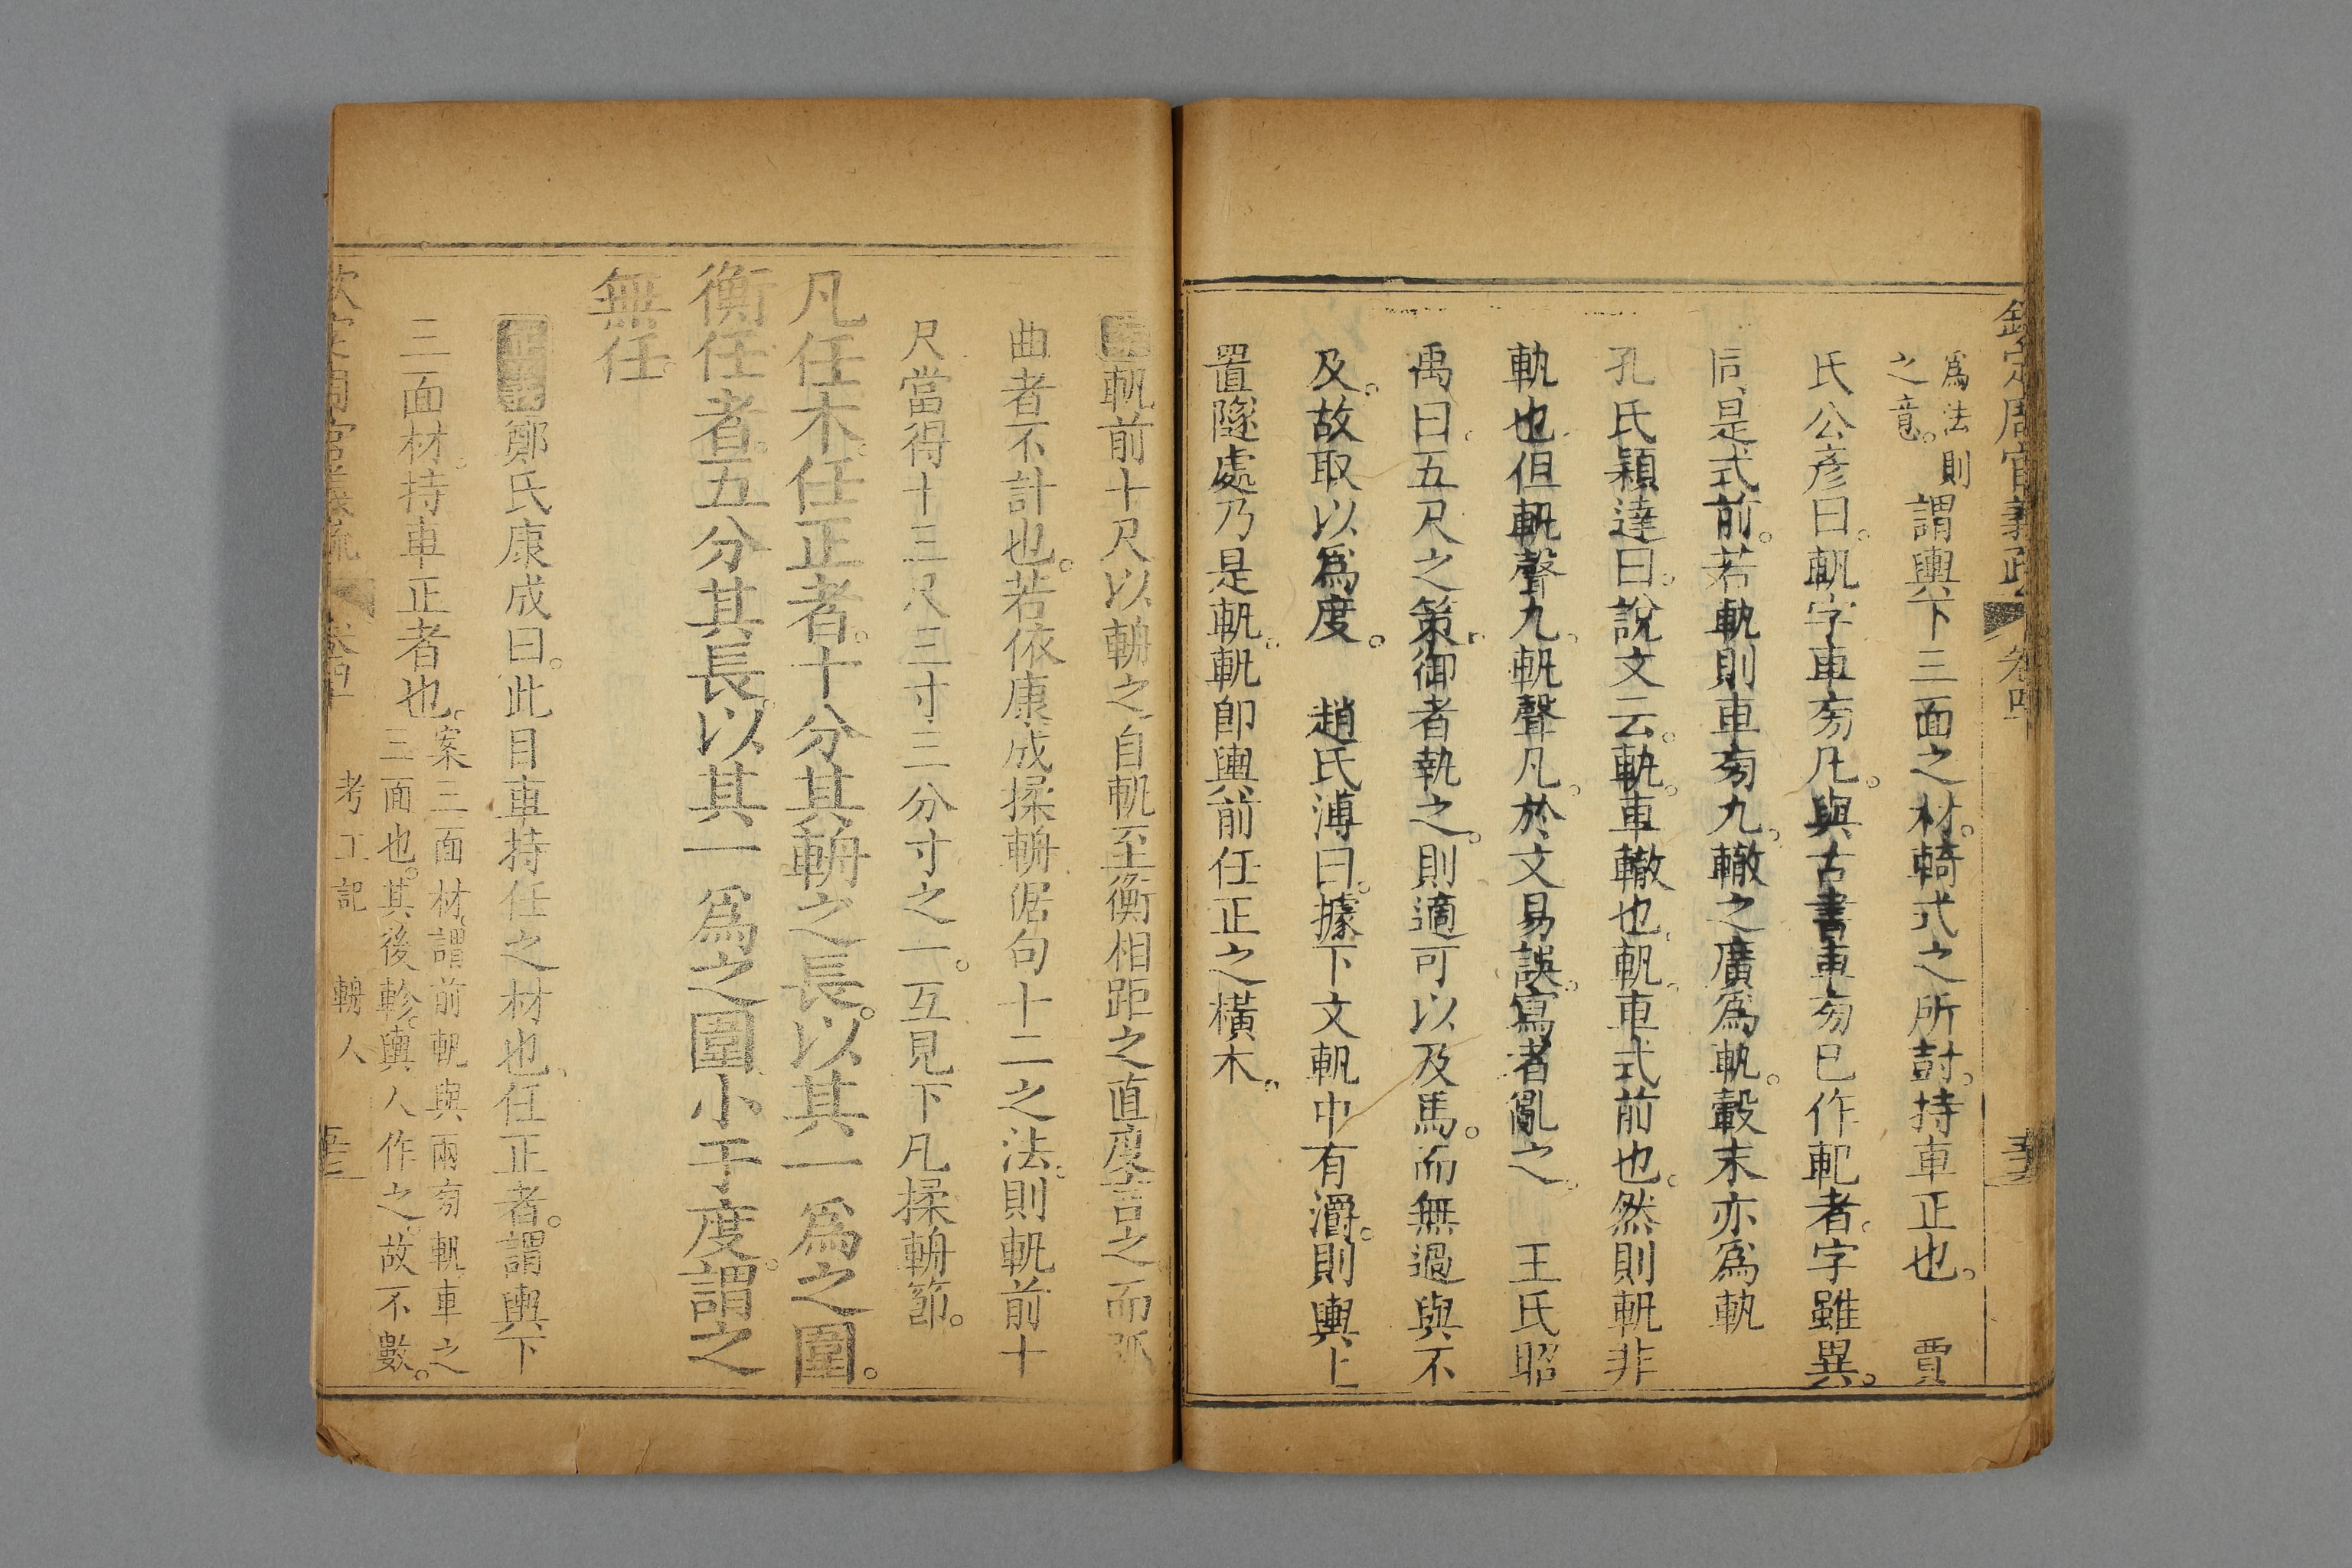 欽定周官義疏 卷四十
為法則
之意。
謂輿下三面之材。輢式之所尌。持車正也。 賈
氏公彥曰。軓字車旁凡。與古書車旁巳作軋者。字雖異。
同是式前。若軌則車旁九。轍之廣為軌。轂末亦為軌
孔氏穎達曰。說文云。軌。車轍也。軓。車式前也。然則軓非
軌也。但軌聲九。軓聲凡。於文易誤。寫者亂之。 王氏昭
禹曰。五尺之策。御者執之。則適可以及馬。而無過與不
及。故取以為度。 趙氏溥曰。據下文軓中有灂。則輿上
置隧處乃是軓。軓卽輿前任正之橫木。
軓前十尺以輈之自軓至衡相距之直度言之而弧
曲者不計也。若依康成揉輈倨句十二之法。則軓前十
尺當得十三尺三寸三分寸之一。互見下凡揉輈節。
凡任木。任正者。十分其輈之長。以其一為之圍。
衡任者。五分其長。以其一為之圍。小于度。謂之
無任。
鄭氏康成曰。此目車持任之材也。任正者。謂輿下
三面材。持車正者也。
案三面材。謂前軓與兩旁軓車之
三面也。其後軫。輿人作之。故不數。
欽定周官義疏 卷四十 考工記 輈人